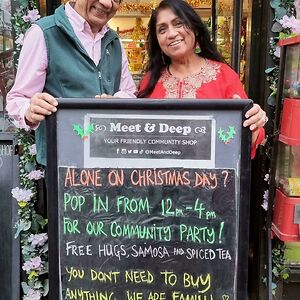 Meet & Deep
YOUR FRIENDLY COMMUNITY SHOP
@MeetAndDeep
ALONE ON CHRISTMAS DAY?
POP IN FROM 12pm-4pm
FOR OUR COMMUNITY PARTY!
FREE HUGS, SAMOSA AND SPICED TEA
YOU DONT NEED TO BUY
ANYTHING. WE ARE FAMILY